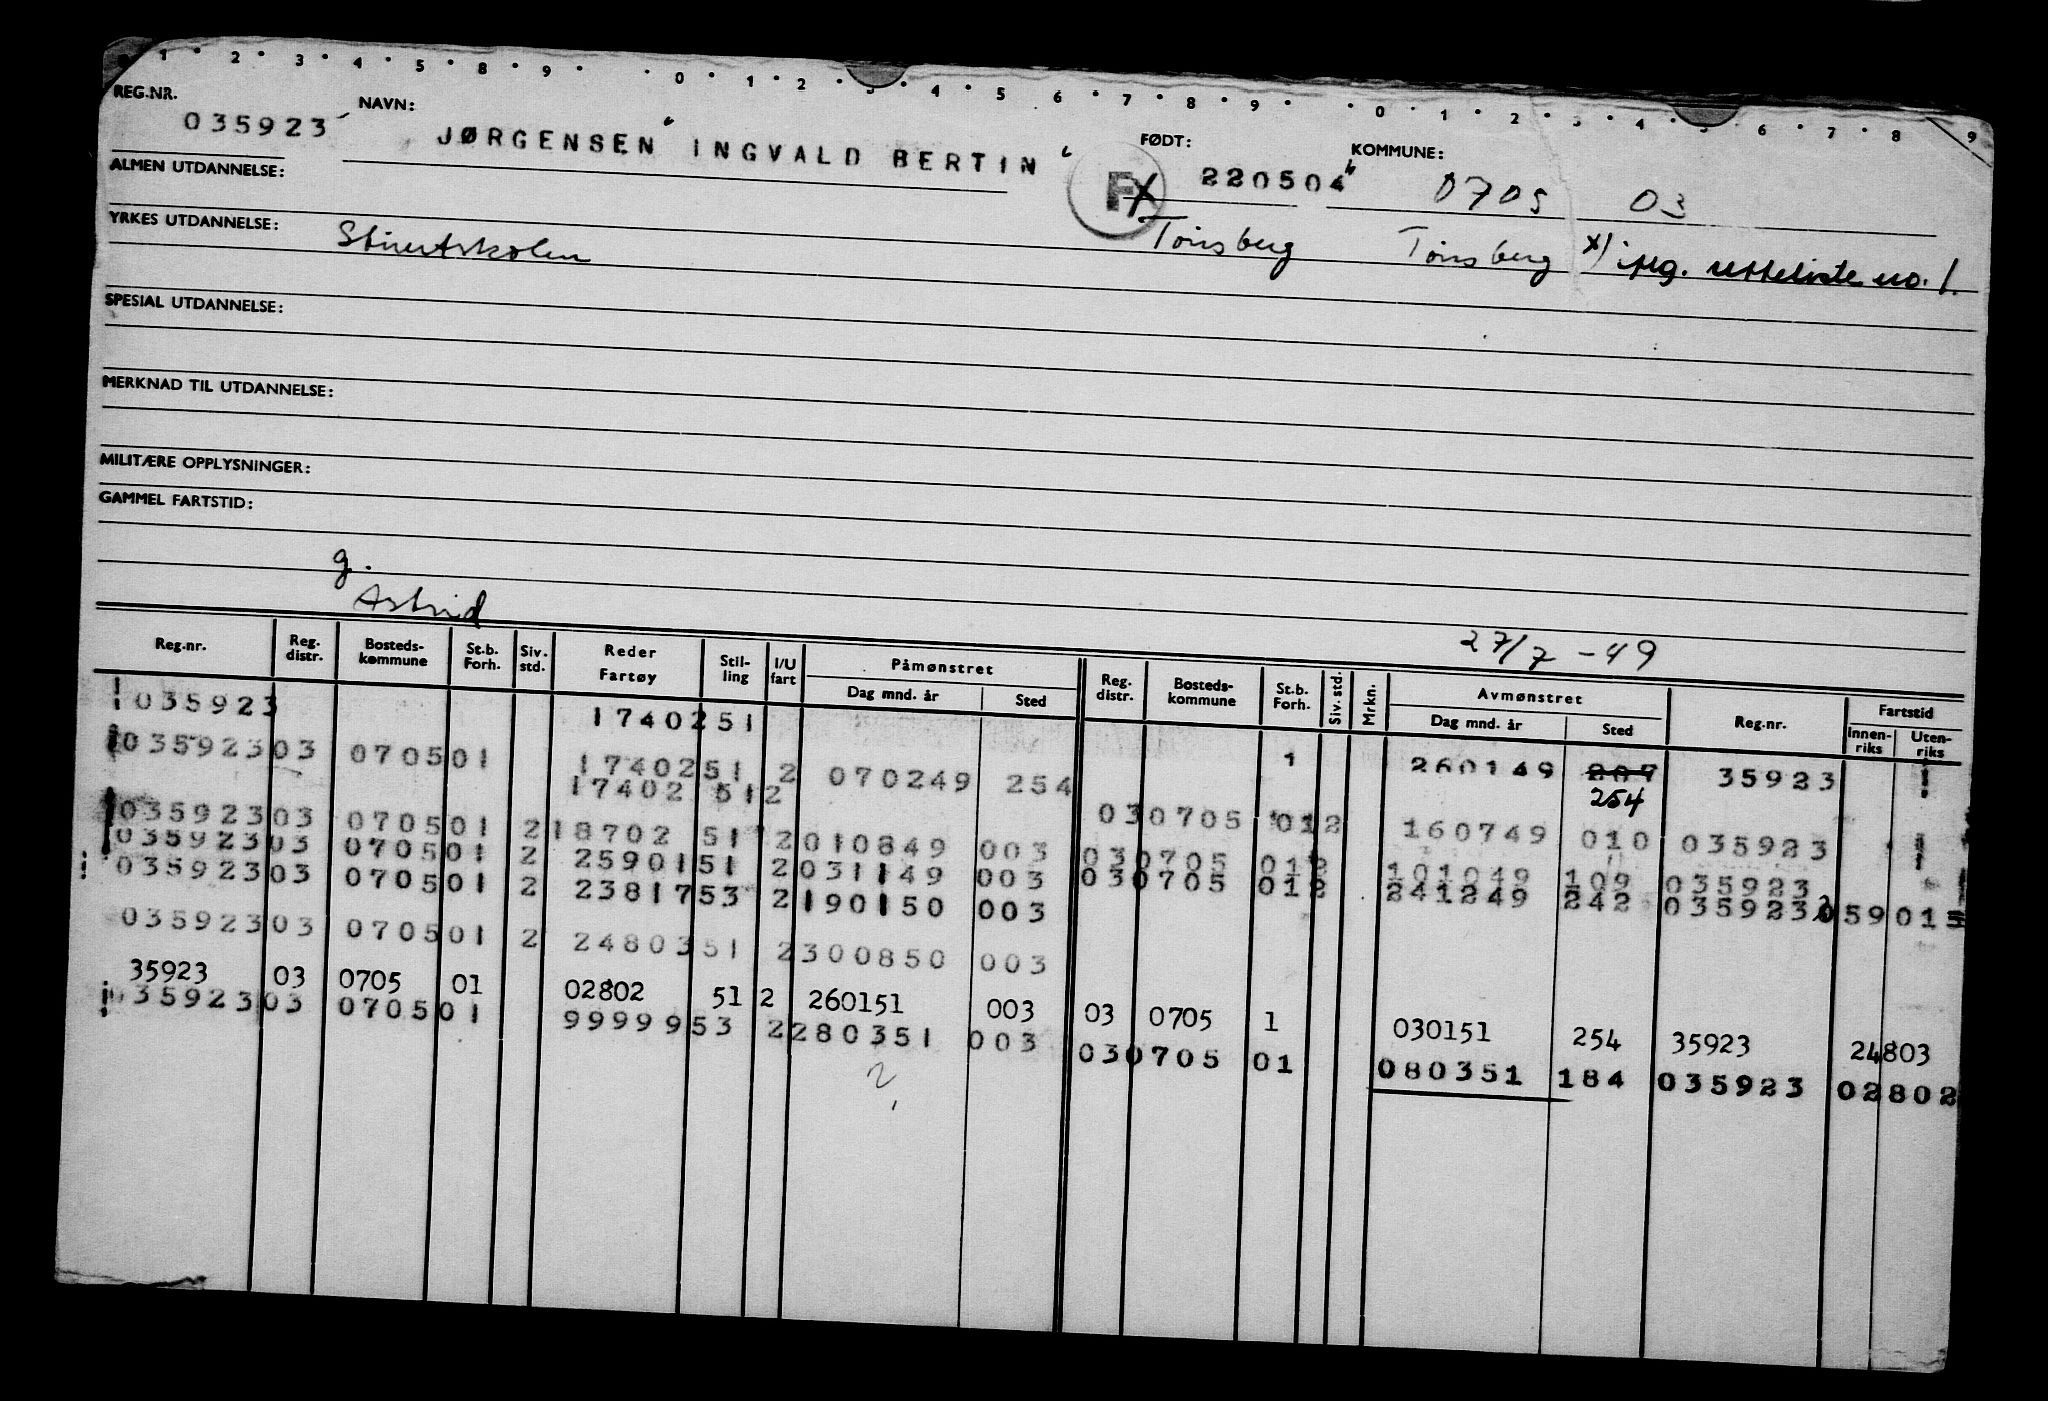 1 • 2 • 3 • 4 • 5 • 8 • 9 • • 0 • 1 • 2 • 3 • 4 • 5 6 • 7 • 8 • 9 • • 0 • 1 • 2 • 3 • 4 • 5 6 • 7 • 8 9
REG.NR. 035923 NAVN: JØRGENSEN INGVALD BERTIN FØDT: 220504 KOMMUNE: 0705 03
ALMEN UTDANNELSE:
Tønsberg Tønsberg x) no. 1.
YRKES UTDANNELSE:
SPESIAL UTDANNELSE:
MERKNAD TIL UTDANNELSE:
MILITÆRE OPPLYSNINGER:
GAMMEL FARTSTID:
g.
Astrid
27/7 - 49
Reg.nr. Reg. distr. Bosteds- kommune St.b. Forh. Siv. std. Reder Fartøy Stil- ling I/U fart Påmønstret Dag mnd. år Sted Reg. distr. Bosteds- kommune St.b. Forh. Siv. std. Mrkn. Avmønstret Dag mnd. år Sted Reg.nr. Fartstid Innen- riks Uten- riks
035923 17402 51
035923 03 0705 01 17402 51 2 070249 254 1 260149 207 35923
17402 51 2 254
035923 03 0705 01 2 18702 51 2 010849 003 03 0705 01 2 160749 010 035923
035923 03 0705 01 2 25901 51 2 031149 003 03 0705 01 2 101049 109 035923
035923 03 0705 01 2 23817 53 2 190150 003 03 0705 01 2 241249 242 035923 059015
035923 03 0705 01 2 24803 51 2 300850 003
35923 03 0705 01 02802 51 2 260151 003 03 0705 1 030151 254 35923 24803
035923 03 0705 01 99999 53 2 280351 003 03 0705 01 080351 184 035923 02802
2